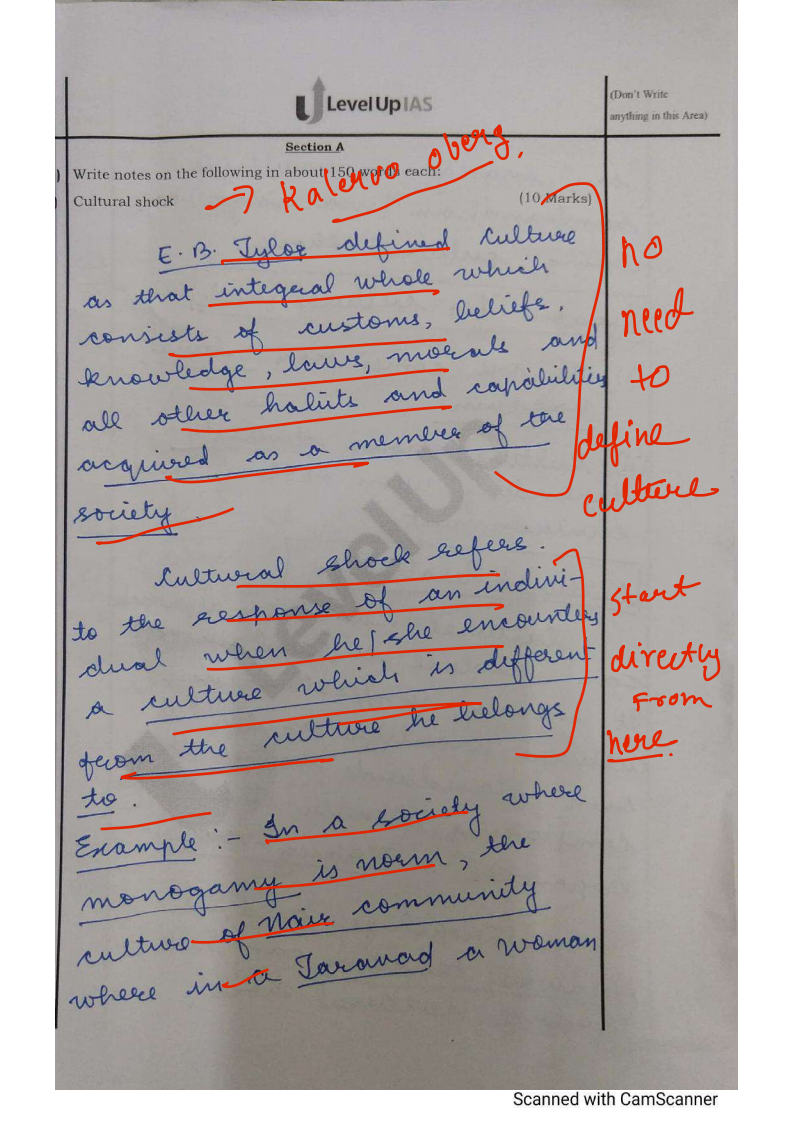 LevelUpIAS
(Don't Write
anything in this Area)
Section A
) Write notes on the following in about 150 words each:
) Cultural shock
(10 Marks)
→ Kalervo oberg.
E. B. Tylor defined culture
as that integral whole which
consists of customs, beliefs,
knowledge, laws, morals and
all other habits and capabilities
acquired as a member of the
society.
no
need
to
define
culture.
Cultural shock refers
to the response of an indivi-
dual when he/she encounters
a culture which is different
from the culture he belongs
to.
start
directly
From
here.
Example :- In a society where
monogamy is norm, the
culture of Nair community
where in a Taravad a woman
LevelUp
Scanned with CamScanner